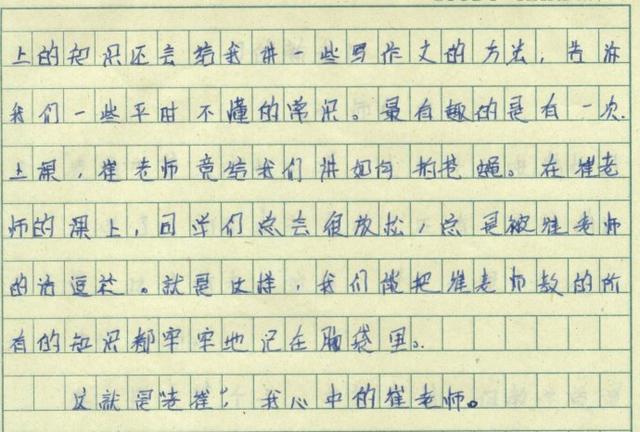 上的知识还会给我讲一些写作文的方法，告诉
我们一些平时不懂的常识。最有趣的是有一次
上课，崔老师竟给我们讲如何拍苍蝇。在崔老
师的课上，同学们总会很放松，总是被崔老师
的话逗笑。就是这样，我们能把崔老师教的所
有的知识都牢牢地记在脑袋里。
这就是“老崔”，我心中的崔老师。